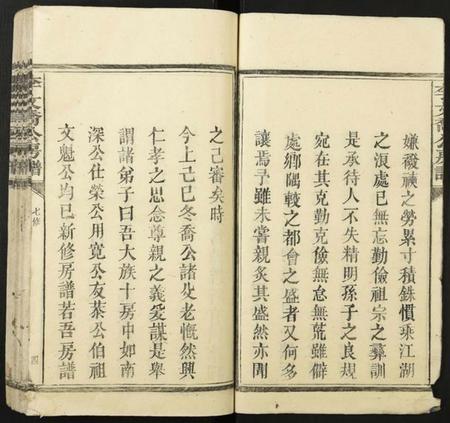 嫌襏襫之勞累寸積銖慣乘江湖
之浪處已無忘勤儉祖宗之彝訓
是承待人不失精明孫子之良規
宛在其克勤克儉無怠無荒雖僻
處鄉隅較之都會之盛者又何多
讓焉予雖未嘗親炙其盛然亦聞
之已審矣時
今上己巳冬喬公諸父老慨然興
仁孝之思念尊親之義爰謀是舉
謂諸弟子曰吾大族十房中如南
深公仕榮公用寬公友恭公伯祖
文魁公均已新修房譜若吾房譜
李文喬公房譜
七修
四